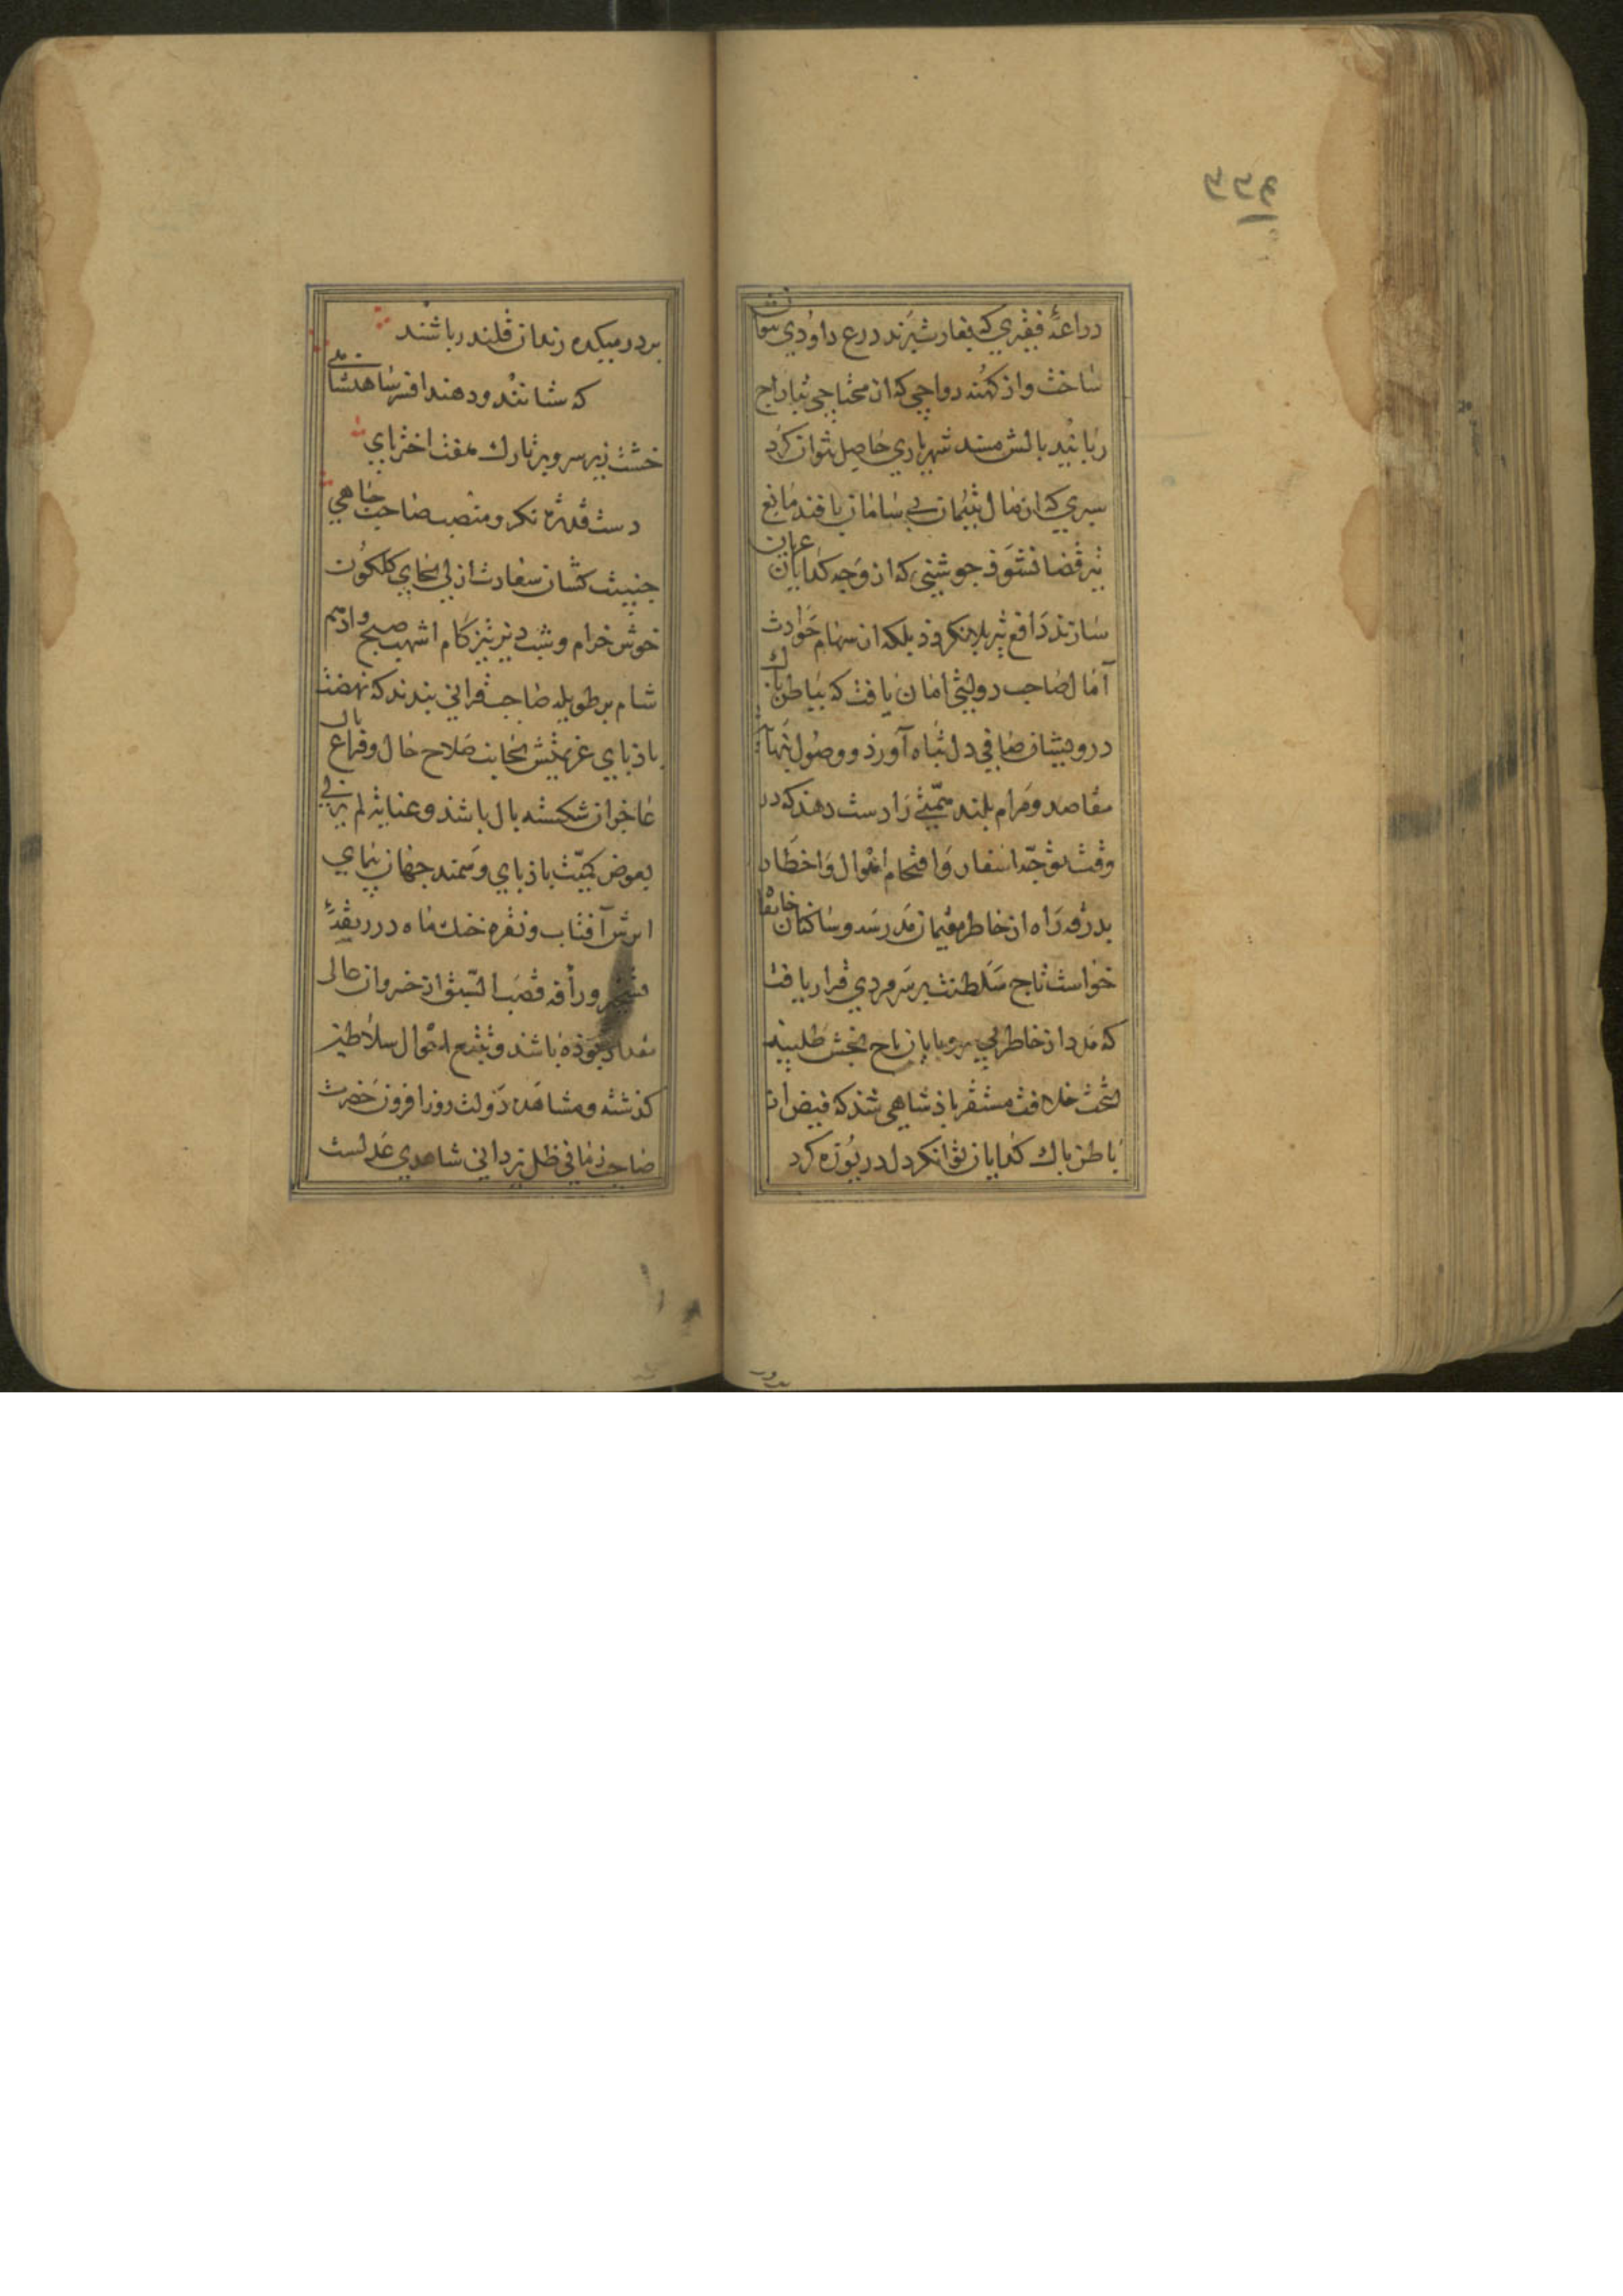 دراعهٔ فقيري که بغارت برند درع داودي نتوان
ساخت واز کهنه رواجي که از محتاجي بتاراج
ربايند بالش مسند شهرياري حاصل نتوان کرد
سپري که از مال يتيمان بي سامان بافند مانع
تير قضا نشود جوشني که از وجه کدايان عريان
سازند دافع تير بلا نکردد بلکه از سهام حوادث
آمال صاحب دولتي امان يافت که بباطن پاك
درويشان صافي دل پناه آورد و وصول بنهايت
مقاصد ومرام بلند همتي را دست دهد که در
وقت توجه اسفار واقتحام اهوال واخطار
بدرقه راه از خاطر مقيمان مدرسه وساکنان خانقاه
خواست تاج سلطنت بر سر مردي قرار يافت
که مدد از خاطر بي سر وپايان تاج بخش طلبيد
تخت خلافت مستقر پادشاهي شد که فيض از
باطن پاك کدايان توانکر دل دريوزه کرد
بر در ميکده رندان قلندر باشند
که ستانند ودهند افسر شاهنشاهي
خشت زير سر وبر تارك هفت اختر پاي
دست قدرت نکر ومنصب صاحب جاهي
جنيبت کشان سعادت ازلي بجاي کلکون
خوش خرام وشبديز تيز کام اشهب صبح وادهم
شام بر طويله صاحب قراني بندند که نهضت
باد پاي عزيمتش بجانب صلاح حال وفراغ بال
عاجزان شکسته بال باشد وعنايت لم يزلي
بعوض کميت باد پاي وسمند جهان پيماي
ابرش آفتاب ونقره خنك ماه در ربقهٔ
تسخير ورأفه قصب السبق از خسروان عالي
مقدار بوده باشد وتتبع احوال سلاطين
کذشته ومشاهده دولت روز افزون حضرت
صاحب زماني ظل يزداني شاهدي عدلست